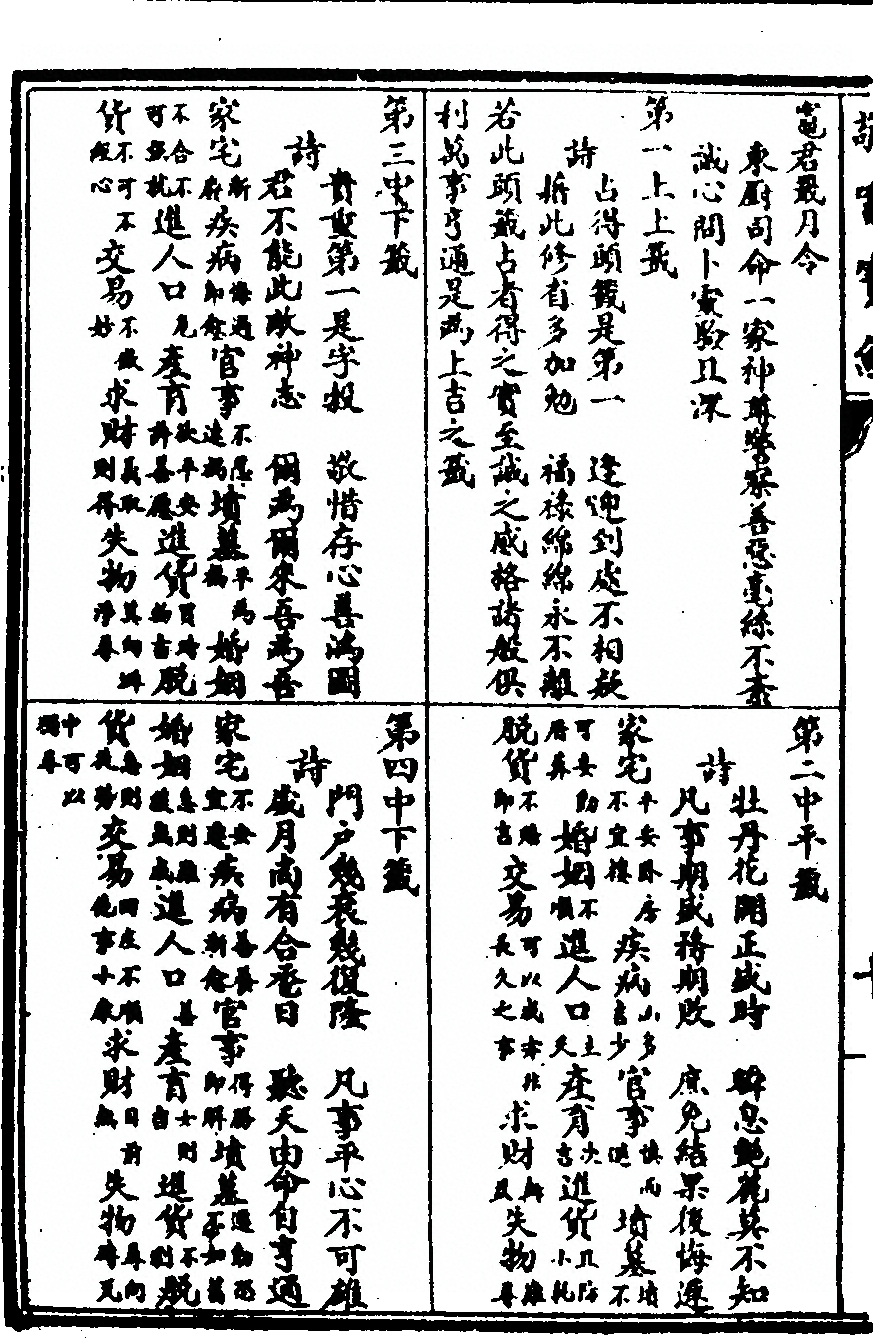 敬竈寶經
竈君嚴月令
東廚司命一家神 鑒察善惡毫絲不
誠心問卜靈驗且深
第一上上籤
詩
占得頭籤是第一 逢迎到處不相
婚此修省多加勉 福祿綿綿永不離
若此頭籤占者得之實至誠之感格諸般俱
利萬事亨通是為上吉之籤
第二中平籤
詩
牡丹花開正盛時 艷花莫不知
凡事期盛務期敗 庶免結果後悔遲
家宅平安卧房不宜樓 疾病小多吉少 官事慎而 墳墓墳不
可妄動 婚姻不順 進人口主 產育次吉 進貨且防小耗
脫貨不賒即吉 交易可以成亦非長久之事 求財 失物難尋
第三中下籤
詩
貴重第一是字穀 敬惜存心善滿圖
君不能此敵神志 爾為爾來吾為吾
家宅漸 疾病悔過即愈 官事不忍速禍 墳墓平為福 婚姻
不合不可強就 進人口凶 產育欲平安許善愿 進貨 脫
貨不可不經心 交易不做妙 求財義取則得 失物莫向
第四中下籤
詩
門戶幾衰幾復隆 凡事平心不可雄
歲月尚有合卺日 聽天由命自亨通
家宅不安宜遷 疾病善養漸愈 官事得勝即解 墳墓遷動不如舊
婚姻急則難 進人口善 產育女則吉 進貨不 脫
貨急則 交易四处不順 求財目前無 失物尋向磚瓦
中可以獨尋